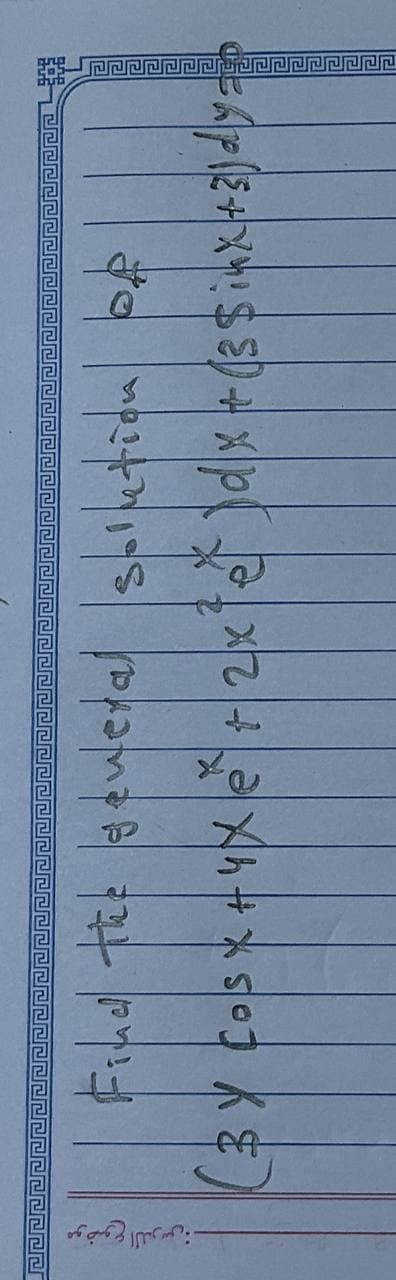 Find The general solution of
(3 y cos x + 4x e^x + 2x^2 e^x) dx + (3 sin x + 3) dy = 0
موضوع الدرس: